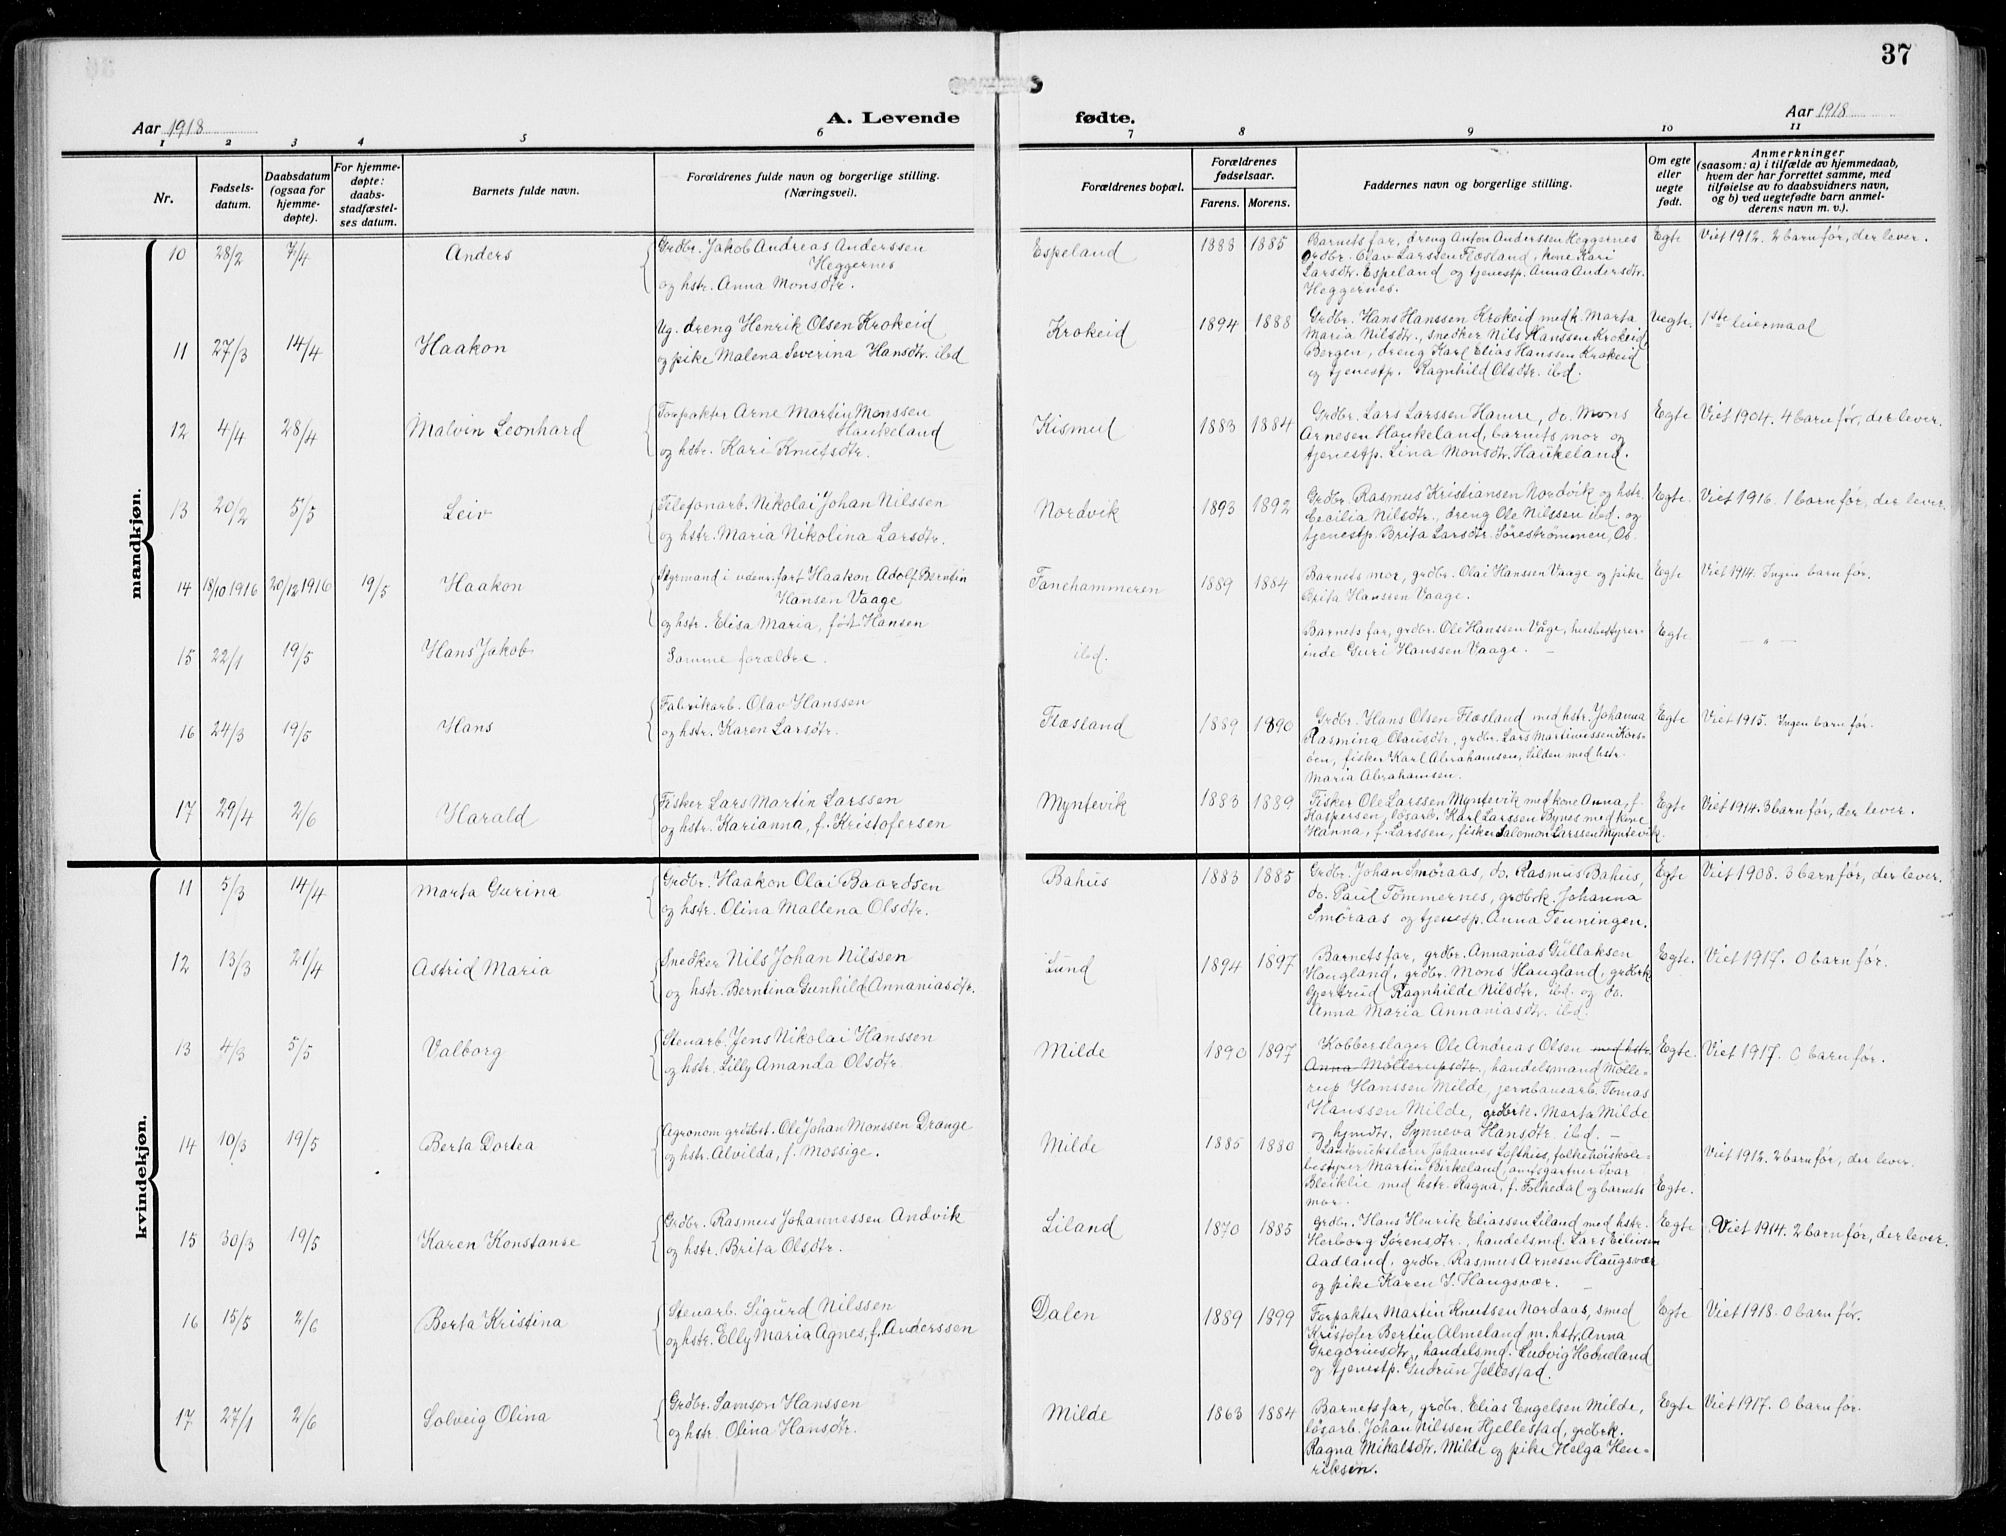 37
Aar 1918
A. Levende fødte.
Aar 1918
1 2 3 4 5 6 7 8 9 10 11
Nr.
Fødsels-
datum.
Daabsdatum
(ogsaa for
hjemme-
døpte).
For hjemme-
døpte:
daabs
stadfæstel-
ses datum.
Barnets fulde navn.
Forældrenes fulde navn og borgerlige stilling.
(Næringsvei).
Forældrenes bopæl.
Forældrenes
fødselsaar.
Farens. Morens.
Faddernes navn og borgerlige stilling.
Om egte
eller
uegte
født.
Anmerkninger
(saasom: a) i tilfælde av hjemmedaab,
hvem der har forrettet samme, med
tilføielse av to daabsvidners navn,
og b) ved uegtefødte barn anmel-
derens navn m. v.).
mandkjøn.
10 28/2 7/4 Anders
Grdbr. Jakob Andreas Anderssen
Heggernes
og hstr. Anna Monsdtr.
Espeland 1883 1885
Barnets far, dreng Anton Anderssen Heggernes
Grdbr. Olav Larssen Flæsland, kone Kari
Larsdtr. Espeland og tjenestp. Anna Andersdtr.
Heggernes.
Egte Viet 1912. 2 barn før, der lever.
11 27/3 14/4 Haakon
Ug. dreng Henrik Olsen Krokeid
og pike Malena Severina Hansdtr. ibd
Krokeid 1894 1888
Grdbr. Hans Hanssen Krokeid med k. Marta
Maria Nilsdtr., snedker Nils Hanssen Krokeid,
Bergen, dreng Karl Elias Hanssen Krokeid
og tjenestp. Ragnhild Olsdtr. ibd.
Uegte. 1ste leiermaal
12 4/4 28/4 Malvin Leonhard
Forpakter Arne Martin Monssen
Haukeland
og hstr. Kari Knutsdtr.
Kismul 1883 1884
Grdbr. Lars Larssen Hamre, do. Mons
Arnesen Haukeland, barnets mor og
tjenestp. Lina Monsdtr. Haukeland.
Egte Viet 1904. 4 barn før, der lever.
13 20/2 5/5 Leiv
Telefonarb. Nikolai Johan Nilssen
og hstr. Maria Nikolina Larsdtr.
Nordvik 1893 1892
Grdbr. Rasmus Kristiansen Nordvik og hstr.
Cecilia Nilsdtr., dreng Ole Nilssen ibd. og
tjenestp. Brita Larsdtr. Sørestrømmen, Os.
Egte. Viet 1916. 1 barn før, der lever.
14 18/10 1916 20/12 1916 19/5 Haakon
Styrmand i udenr. fart Haakon Adolf Berntin
Hansen Vaage
og hstr. Elisa Maria, født Hansen
Fanehammeren 1889 1884
Barnets mor, grdbr. Olai Hanssen Vaage og pike
Brita Hanssen Vaage.
Egte Viet 1914. Ingen barn før.
15 22/1 19/5 Hans Jakob
Samme forældre.
ibd.
Barnets far, grdbr. Ole Hanssen Våge, husbestyrer-
inde Guri Hanssen Vaage. —
Egte. — „ —
16 24/3 19/5 Hans
Fabrikarb. Olav Hanssen
og hstr. Karen Larsdtr.
Flæsland 1889 1890
Grdbr. Hans Olsen Flæsland med hstr. Johanna
Rasmina Olausdtr., grdbr. Lars Martinussen Kors-
øen, fisker Karl Abrahamsen, Silden med hstr.
Maria Abrahamsen.
Egte Viet 1915. Ingen barn før.
17 29/4 2/6 Harald
Fisker Lars Martin Larssen
og hstr. Karianna, f. Kristofersen
Myntevik 1883 1889
Fisker Ole Larssen Myntevik med kone Anna, f.
Kaspersen, løsarb. Karl Larssen Bynes med kone
Hanna, f. Larssen, fisker Salomon Larssen Myntevik.
Egte Viet 1914. 3 barn før, der lever.
kvindekjøn.
11 5/3 14/4 Marta Gurina
Grdbr. Haakon Olai Baardsen
og hstr. Olina Mallena Olsdtr.
Bahus 1883 1885
Grdbr. Johan Smøraas, do. Rasmus Bahus,
do. Paul Tømmernes, grdbrk. Johanna
Smøraas og tjenesp. Anna Tenningen.
Egte Viet 1908. 3 barn før, der lever.
12 13/3 21/4 Astrid Maria
Snedker Nils Johan Nilssen
og hstr. Berntina Gunhild Annaniasdtr.
Lund 1894 1897
Barnets far, grdbr. Annanias Gullaksen
Haugland, grdbr. Mons Haugland, grdbrk
Gjertrud Ragnhilde Nilsdtr. ibd. og do.
Anna Maria Annaniasdtr. ibd.
Egte. Viet 1917. 0 barn før.
13 4/3 5/5 Valborg
Stenarb. Jens Nikolai Hanssen
og hstr. Lilly Amanda Olsdtr.
Milde 1890 1897
Kobberslager Ole Andreas Olsen med hstr.
Anna Møllerupsdtr., handelsmand Mølle-
rup Hanssen Milde, jernbanearb. Tomas
Hanssen Milde, grdbrk. Marta Milde
og hjmdtr. Synneva Hansdtr. ibd. —
Egte. Viet 1917. 0 barn før.
14 10/3 19/5 Berta Dortea
Agronom grdbst. Ole Johan Monssen Drange
og hstr. Alvilda, f. Mossige.
Milde 1885 1880
Landbrukslærer Johannes Lofthus, folkehøiskole-
bestyrer Martin Birkeland, amtsgartner Ivar
Bleiklie med hstr. Ragna, f. Folkedal og barnets
mor.
Egte. Viet 1912. 2 barn før, der lever.
15 30/3 19/5 Karen Konstanse
Grdbr. Rasmus Johannessen Andvik
og hstr. Brita Olsdtr.
Liland 1870 1885
Grdbr. Hans Henrik Eliassen Liland med hstr.
Herborg Sørensdtr., handelsmd. Lars Eilivsen
Aadland, grdbr. Rasmus Arnesen Haugsvær
og pike Karen J. Haugsvær. —
Egte Viet 1914. 2 barn før, der lever.
16 15/5 2/6 Berta Kristina
Stenarb. Sigurd Nilssen
og hstr. Elly Maria Agnes, f. Anderssen
Dalen 1889 1899
Forpakter Martin Knutsen Nordaas, smed
Kristofer Bertin Almeland m. hstr. Anna
Gregoriusdtr., handelsmd. Ludvig Hodneland
og tjenestp. Gudrun Jellestad.
Egte Viet 1918. 0 barn før.
17 27/1 2/6 Solveig Olina
Grdbr. Samson Hanssen
og hstr. Olina Hansdtr.
Milde 1863 1884
Barnets far, grdbr. Elias Engelsen Milde,
løsarb. Johan Nilssen Hjellestad, grdbrk.
Ragna Mikalsdtr. Milde og pike Helga Hen-
riksen.
Egte Viet 1917. 0 barn før.